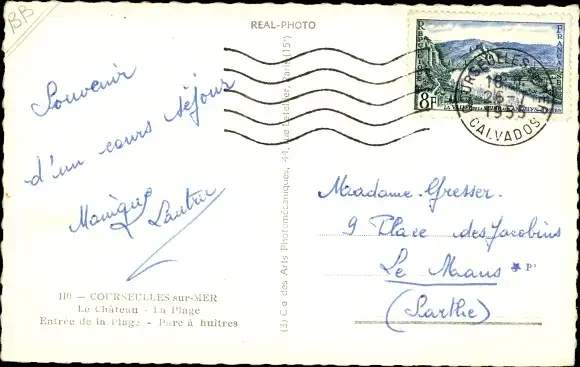 BB
REAL-PHOTO
RÉPUBLIQUE
FRANÇAISE
8F
COURSEULLES
1955
CALVADOS
Souvenir
d'un cours séjour
Monique
Lautru
Madame Gresser
9 Place des Jacobins
Le Mans
(Sarthe)
119 — COURSEULLES sur-MER
Le Château - La Plage
Entrée de la Plage - Parc à huîtres
(3) Cie des Arts Photomécaniques, 44, rue Letellier, Paris (15e)